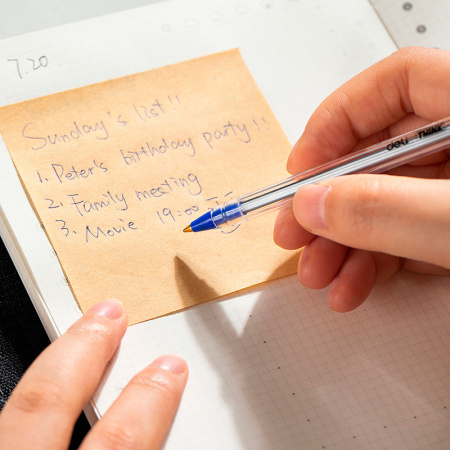 7.20
Sunday's list!!
1. Peter's birthday party!!
2. Family meeting
3. Movie 19:00
deli THINK